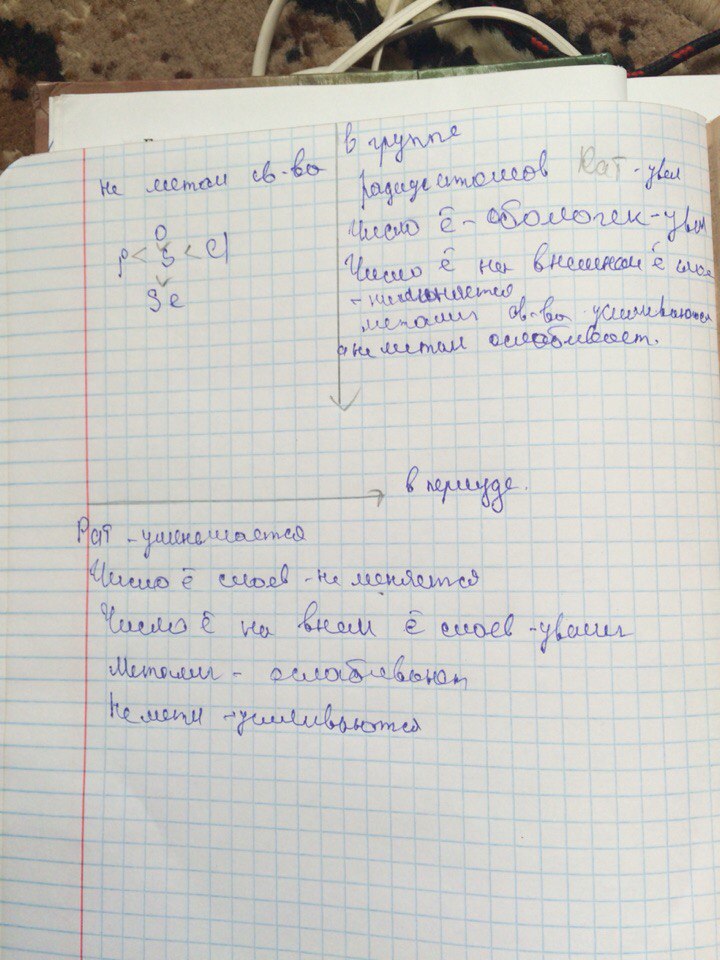 не метал св-во
O
P < S < Cl
Se
в группе
радиус атомов Rат - увел
Число ē - оболочек - увел
Число ē на внешнем ē слое
- не меняется
металич св-ва усиливаются
а не метал ослабивает.
в периуде.
Rат - уменшается
Число ē слоев - не меняется
Число ē на внеш ē слоев - увелич
Металич - ослабивают
Не мети - усиливаются